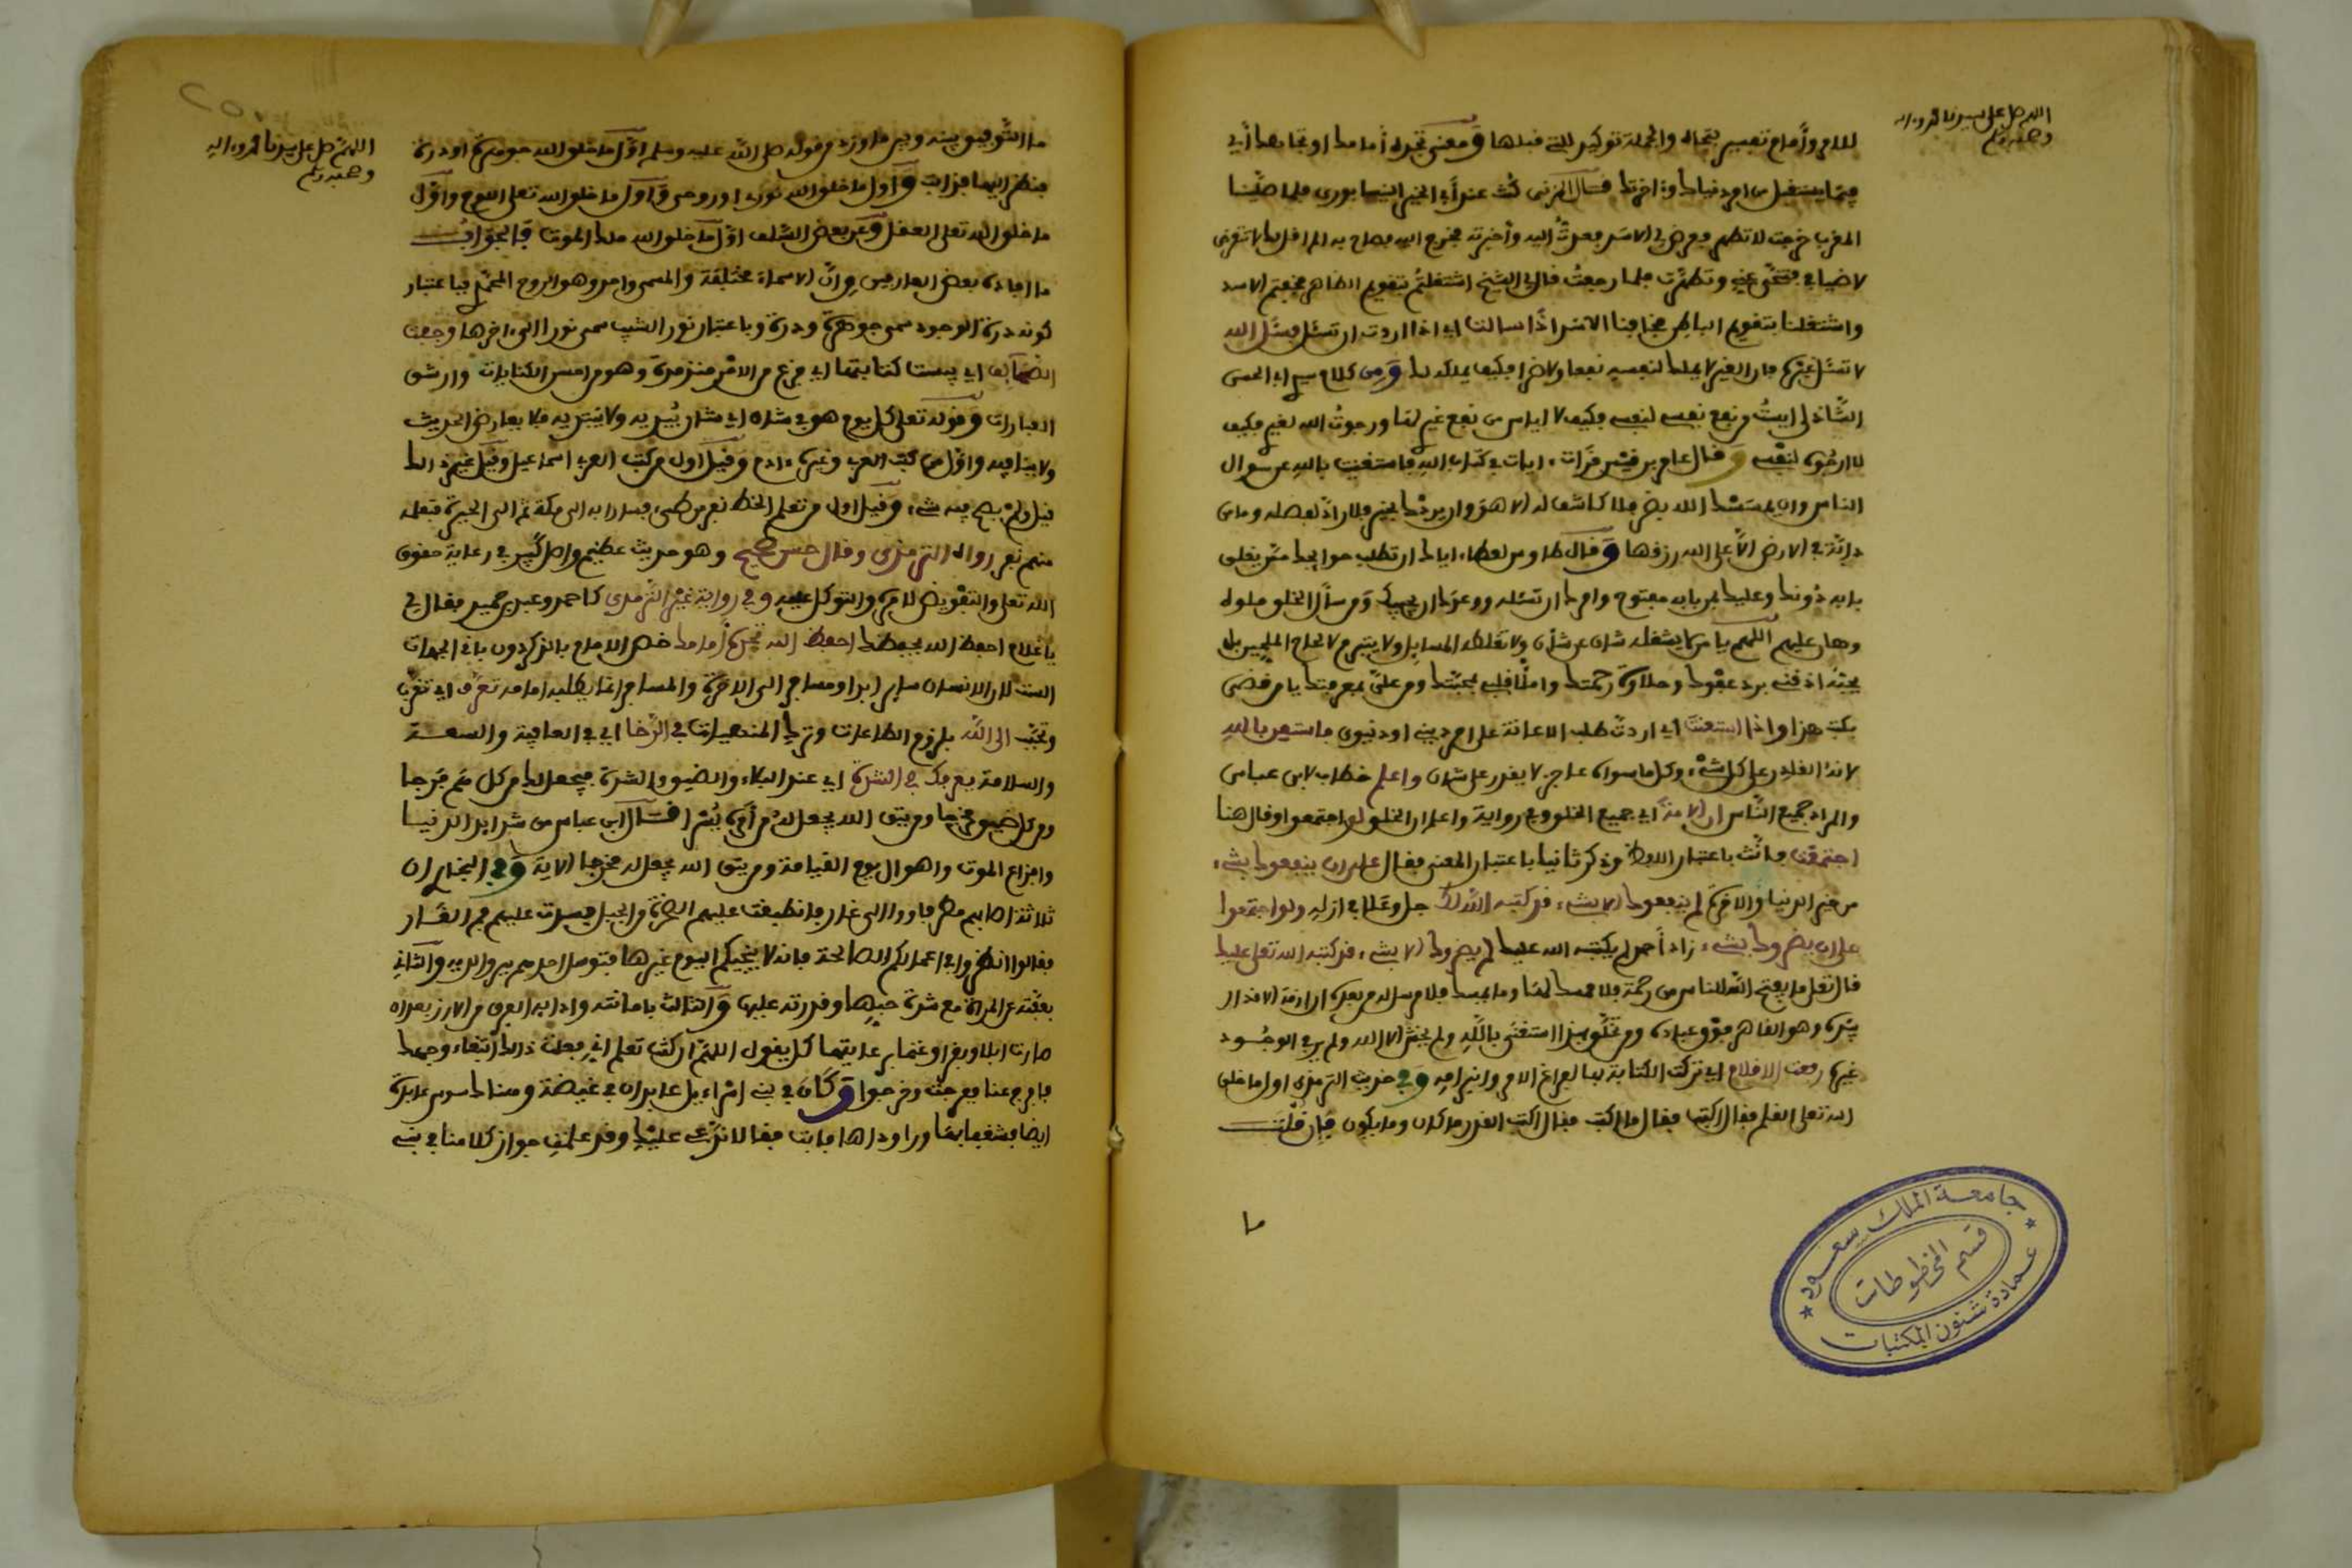 اللهم صل على سيدنا محمد وءاله
وصحبه وسلم
للام وأمام تفسير تجاه والجملة توكيد للتي قبلها ومعنى تجده أمامك او تجاهك أي
فيما يستقبل من امر دنياك واخرتك قال كنت عند أبي الخير
المغرب خرجت لاتطهر الاسد اليه وأخبرته فخرج اليه وصاح به الم اقل لك لا تتعرض
لاضيافي فتنحى عنه وتطهرت فلما رجعت قال لي الشيخ اشتغلتم بتقويم الظاهر فخفتم الاسد
واشتغلنا بتقويم الباطن فخافنا الاسد اذا سالت اي اذا اردت ان تسئل فسئل الله
لا تسئل غيره فان الغير لا يملك لنفسه نفعا ولا ضرا فكيف يملكه لك ومن كلام سيدي ابي الحسن
الشاذلي ايست من نفع نفسي لنفسي فكيف لا ايأس من نفع غيري لها ورجوت الله لغيري فكيف
لا ارجوه لنفسي وقال عامر بن قيس قرأت ءايات في كتاب الله فاستغنيت بالله عن سوال
الناس وان يمسسك الله بضر فلا كاشف له الا هو وان يردك بخير فلا راد لفضله وما من
دابة في الارض الا على الله رزقها وقال طاوس لعطاء اياك ان تطلب حوائجك ممن يغلق
بابه دونك وعليك بمن بابه مفتوح وامرك ان تسئله ووعدك ان يجيبك ومن سأل الخلق ملوه
وهان عليهم اللهم يا من لا يشغله شان عن شأن ولا تغلطه المسايل ولا يتبرم لالحاح الملحين بل
يحبه اذقني برد عفوك وحلاوة رحمتك واملأ قلبي بمحبتك ومن علي بمعرفتك يا من
هذا واذا استعنت اي اردت طلب الاعانة على امر ديني او دنيوي فاستعن بالله
لانه القادر على كل شيء وكل ما سواه عاجز لا يقدر على شان واعلم خطاب لابن عباس
والمراد جميع الناس ان الامة اي جميع الخلق وفي رواية واعلم ان الخلق لو اجتمعوا وقال هنا
اجتمعت فانث باعتبار اللفظ وذكر ثانيا باعتبار المعنى فقال على ان ينفعوك بشيء
من خير الدنيا والاخرة لم ينفعوك الا بشيء قد كتبه الله لك جل وعلا في ازله ولو اجتمعوا
على ان يضروك بشيء زاد أحمد لم يكتبه الله عليك لم يضروك الا بشيء قد كتبه الله تعلى عليك
قال تعلى ما يفتح الله للناس من رحمة فلا ممسك لها وما يمسك فلا مرسل له من بعده
وهو القاهر فوق عباده ومن تخلق بهذا استغنى بالله ولم يخش الا الله ولم ير في الوجود
غيره رفعت الاقلام اي تركت الكتابة بها لفراغ الامر وفي حديث الترمذي اول ما خلق
الله تعلى القلم فقال اكتب فقال ما اكتب فقال اكتب القدر ما كان وما يكون فإن قلت
ما
جامعة الملك سعود
قسم المخطوطات
عمادة شئون المكتبات
اللهم صل على سيدنا محمد وءاله
وصحبه وسلم
ما التوفيق بينه وبين ما ورد من قوله صلى الله عليه وسلم اول ما خلق الله جوهرة او درة
فنظر اليها فذابت واول ما خلق الله نوره او روحي واول ما خلق الله تعلى اللوح واول
ما خلق الله تعلى العقل وعن بعض السلف اول ما خلق الله ملك الموت فالجواب
ما افاده بعض العارفين من ان الاسماء مختلفة والمسمى واحد وهو الروح المحمدي فباعتبار
كونه درة الوجود سمي جوهرة ودرة وباعتبار نور الشيب سمي نورا الى ءاخرها وجفت
الصحايف اي يبست كتابتها اي فرغ من الامر منذ مدة وهو من احسن الكنايات وارشق
العبارات وقوله تعلى كل يوم هو في شان اي شان يبديه ولا يبتديه فلا يعارض الحديث
ولا ينافيه واول من كتب العربي وغيره ءادم وقيل اول من كتب العربي اسماعيل وقيل غير ذلك
قيل ولم يصح فيه شيء وقيل اول من تعلم الخط نفر من طيء فساروا به الى مكة ثم الى الحيرة فتعلمه
منهم نفر رواه الترمذي وقال حسن صحيح وهو حديث عظيم واصل كبير في رعاية حقوق
الله تعلى والتفويض لامره والتوكل عليه وفي رواية غير الترمذي كاحمد وعبد بن حميد فقال لي
يا غلام احفظ الله يحفظك احفظ الله تجده أمامك خص الامام بالذكر دون باقي الجهات
الست لان الانسان سافر ابدا ومسافر الى الاخرة والمسافر انما يطلب امامه تعرف اي تقرب
وتحبب الى الله بلزوم الطاعات وترك المنهيات في الرخا اي في العافية والسعة
والسلامة يعرفك في الشدة اي عند البلاء والضيق والشدة فيجعل لك من كل هم فرجا
ومن كل ضيق مخرجا ومن يتق الله يجعل له من أمره يسرا قال ابن عباس من شدايد الدنيا
وافزاع الموت واهوال يوم القيامة ومن يتق الله يجعل له مخرجا الاية وفي البخاري ان
ثلاثة اصابهم مطر فاووا الى غار فانطبقت عليهم الصخرة من الجبل فسدت عليهم فم الغار
فقالوا انظروا اعمالكم الصالحة فانه لا ينجيكم اليوم غيرها فتوسل احدهم ببر والديه والثاني
بعفته عن المرأة مع شدة حبها وقدرته عليها والثالث بامانته
صارت ابلا وبقرا وغنما كل يقول اللهم ان كنت تعلم اني فعلت ذلك ابتغاء وجهك
فافرج عنا ففرجت وخرجوا وكان في بني اسراءيل عابدان في غيضة وهناك سوسن عابدة
ايضا فشغفا بها وراوداها فابت فقالا نشهد عليك وقد علمت جواز كلامنا في بني